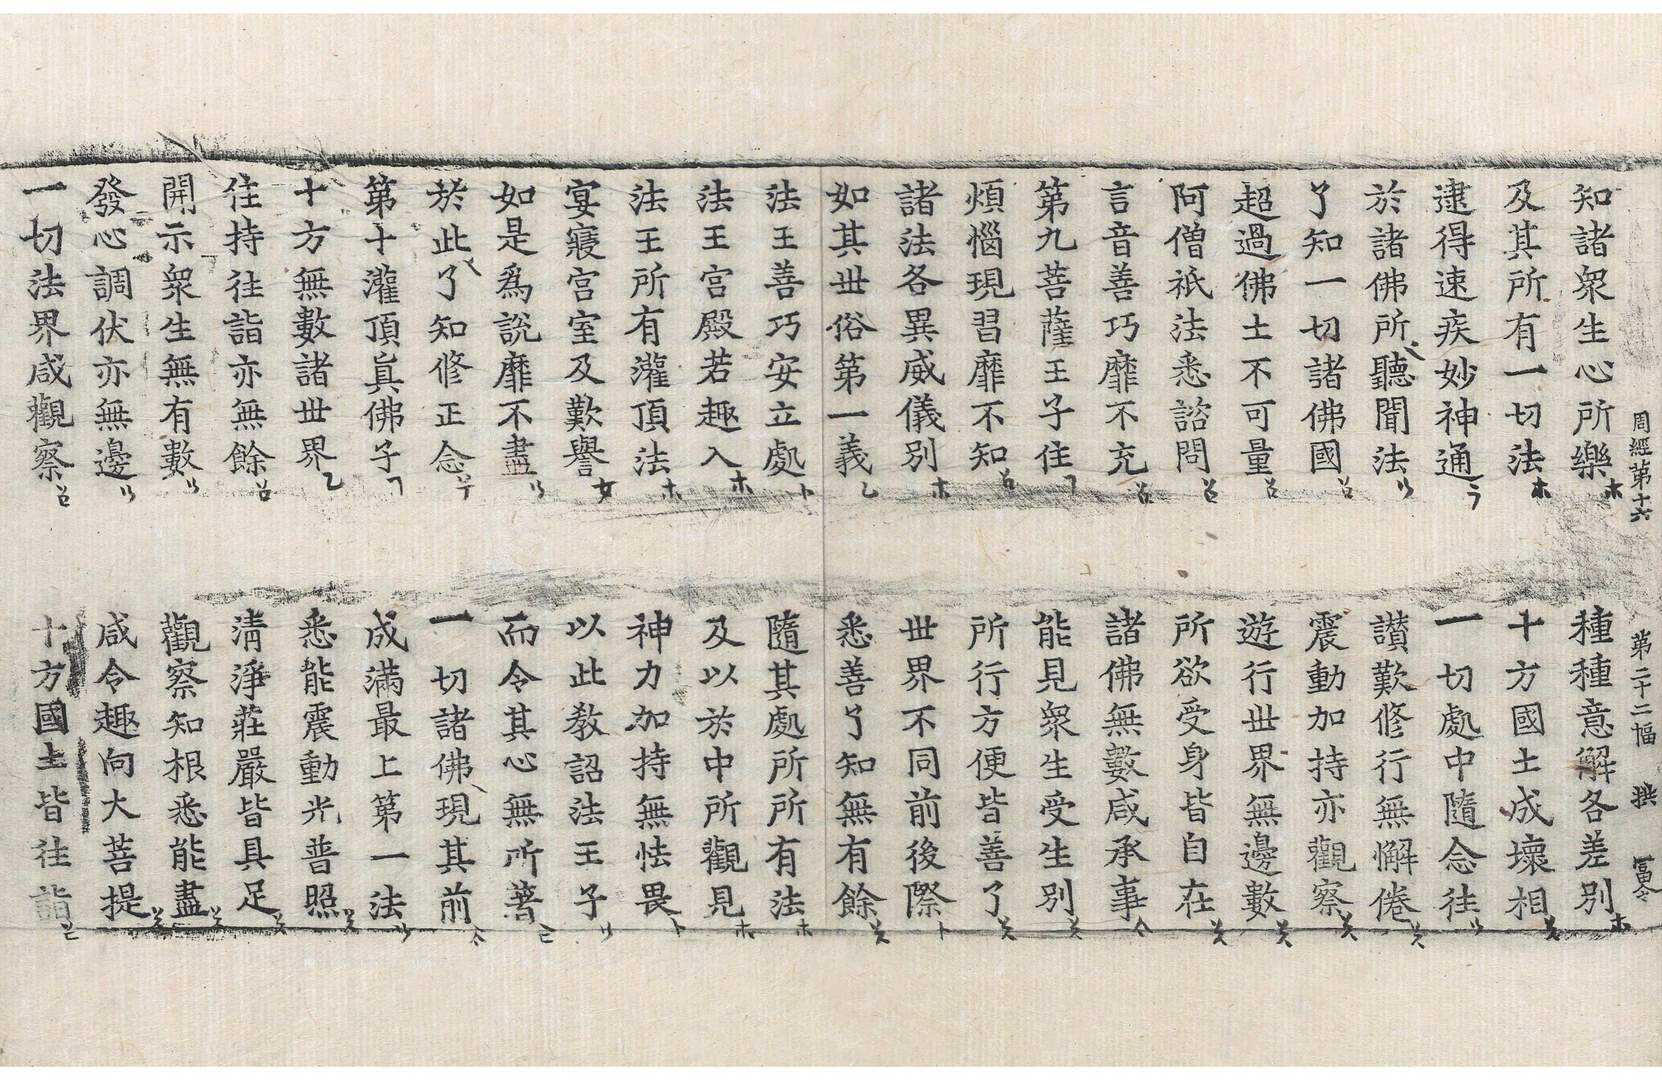 周經第十六　第二十二幅　撰　冨令
知諸衆生心所樂　種種意解各差別
及其所有一切法　十方國土成壞相
逮得速疾妙神通　一切處中隨念往
於諸佛所聽聞法　讃歎修行無懈倦
了知一切諸佛國　震動加持亦觀察
超過佛土不可量　遊行世界無邊數
阿僧祇法悉諮問　所欲受身皆自在
言音善巧靡不充　諸佛無數咸承事
第九菩薩王子住　能見衆生受生別
煩惱現習靡不知　所行方便皆善了
諸法各異威儀別　世界不同前後際
如其世俗第一義　悉善了知無有餘
法王善巧安立處　隨其處所所有法
法王宮殿若趣入　及以於中所觀見
法王所有灌頂法　神力加持無怯畏
宴寢宮室及歎譽　以此教詔法王子
如是爲說靡不盡　而令其心無所著
於此了知修正念　一切諸佛現其前
第十灌頂眞佛子　成滿最上第一法
十方無數諸世界　悉能震動光普照
住持往詣亦無餘　清淨莊嚴皆具足
開示衆生無有數　觀察知根悉能盡
發心調伏亦無邊　咸令趣向大菩提
一切法界咸觀察　十方國土皆往詣